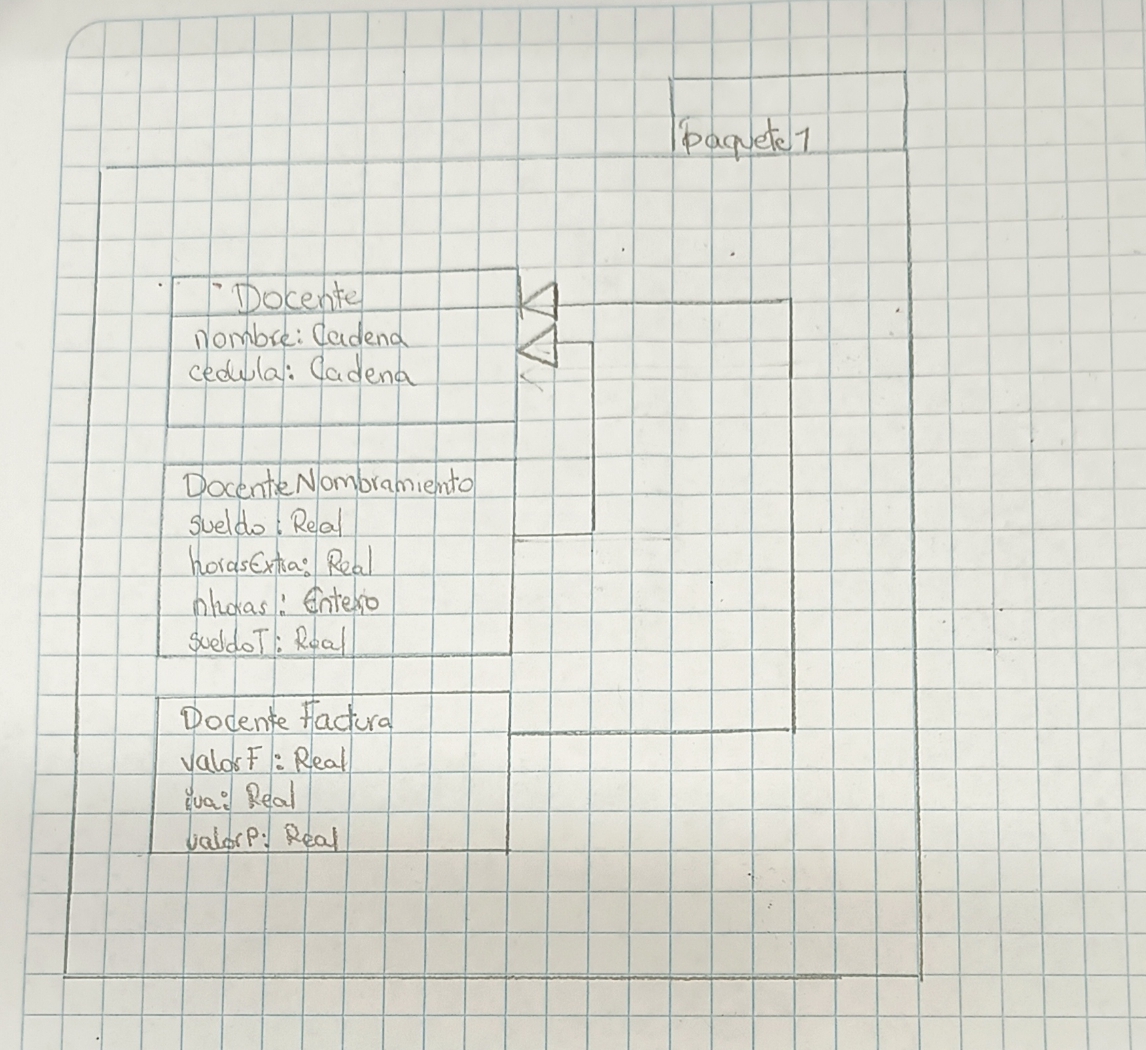 paquete 1
Docente
nombre: Cadena
cedula: Cadena
DocenteNombramiento
sueldo: Real
horasExtra: Real
nhoras: Entero
sueldoT: Real
Docente Factura
valorF: Real
iva: Real
valorP: Real